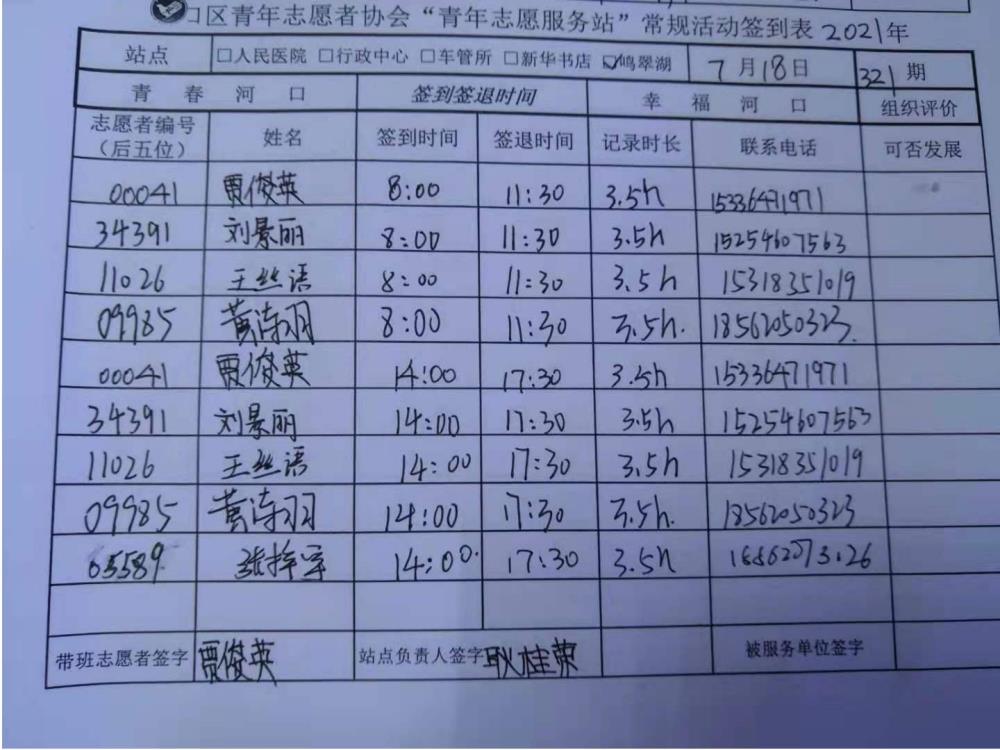 口区青年志愿者协会“青年志愿服务站”常规活动签到表 2021年
站点 □人民医院 □行政中心 □车管所 □新华书店 ☑鸣翠湖 7月18日 321期
青春河口 签到签退时间 幸福河口 组织评价
志愿者编号（后五位） 姓名 签到时间 签退时间 记录时长 联系电话 可否发展
00041 贾俊英 8:00 11:30 3.5h 15336471971
34391 刘景丽 8:00 11:30 3.5h 15254607563
11026 王丝语 8:00 11:30 3.5h 15318351019
09985 黄涛羽 8:00 11:30 3.5h. 18562050323.
00041 贾俊英 14:00 17:30 3.5h 15336471971
34391 刘景丽 14:00 17:30 3.5h 15254607563
11026 王丝语 14:00 17:30 3.5h 15318351019
09985 黄涛羽 14:00 17:30 3.5h. 18562050323
65589 14:00. 17:30 3.5h
带班志愿者签字 贾俊英 站点负责人签字 耿桂荣 被服务单位签字